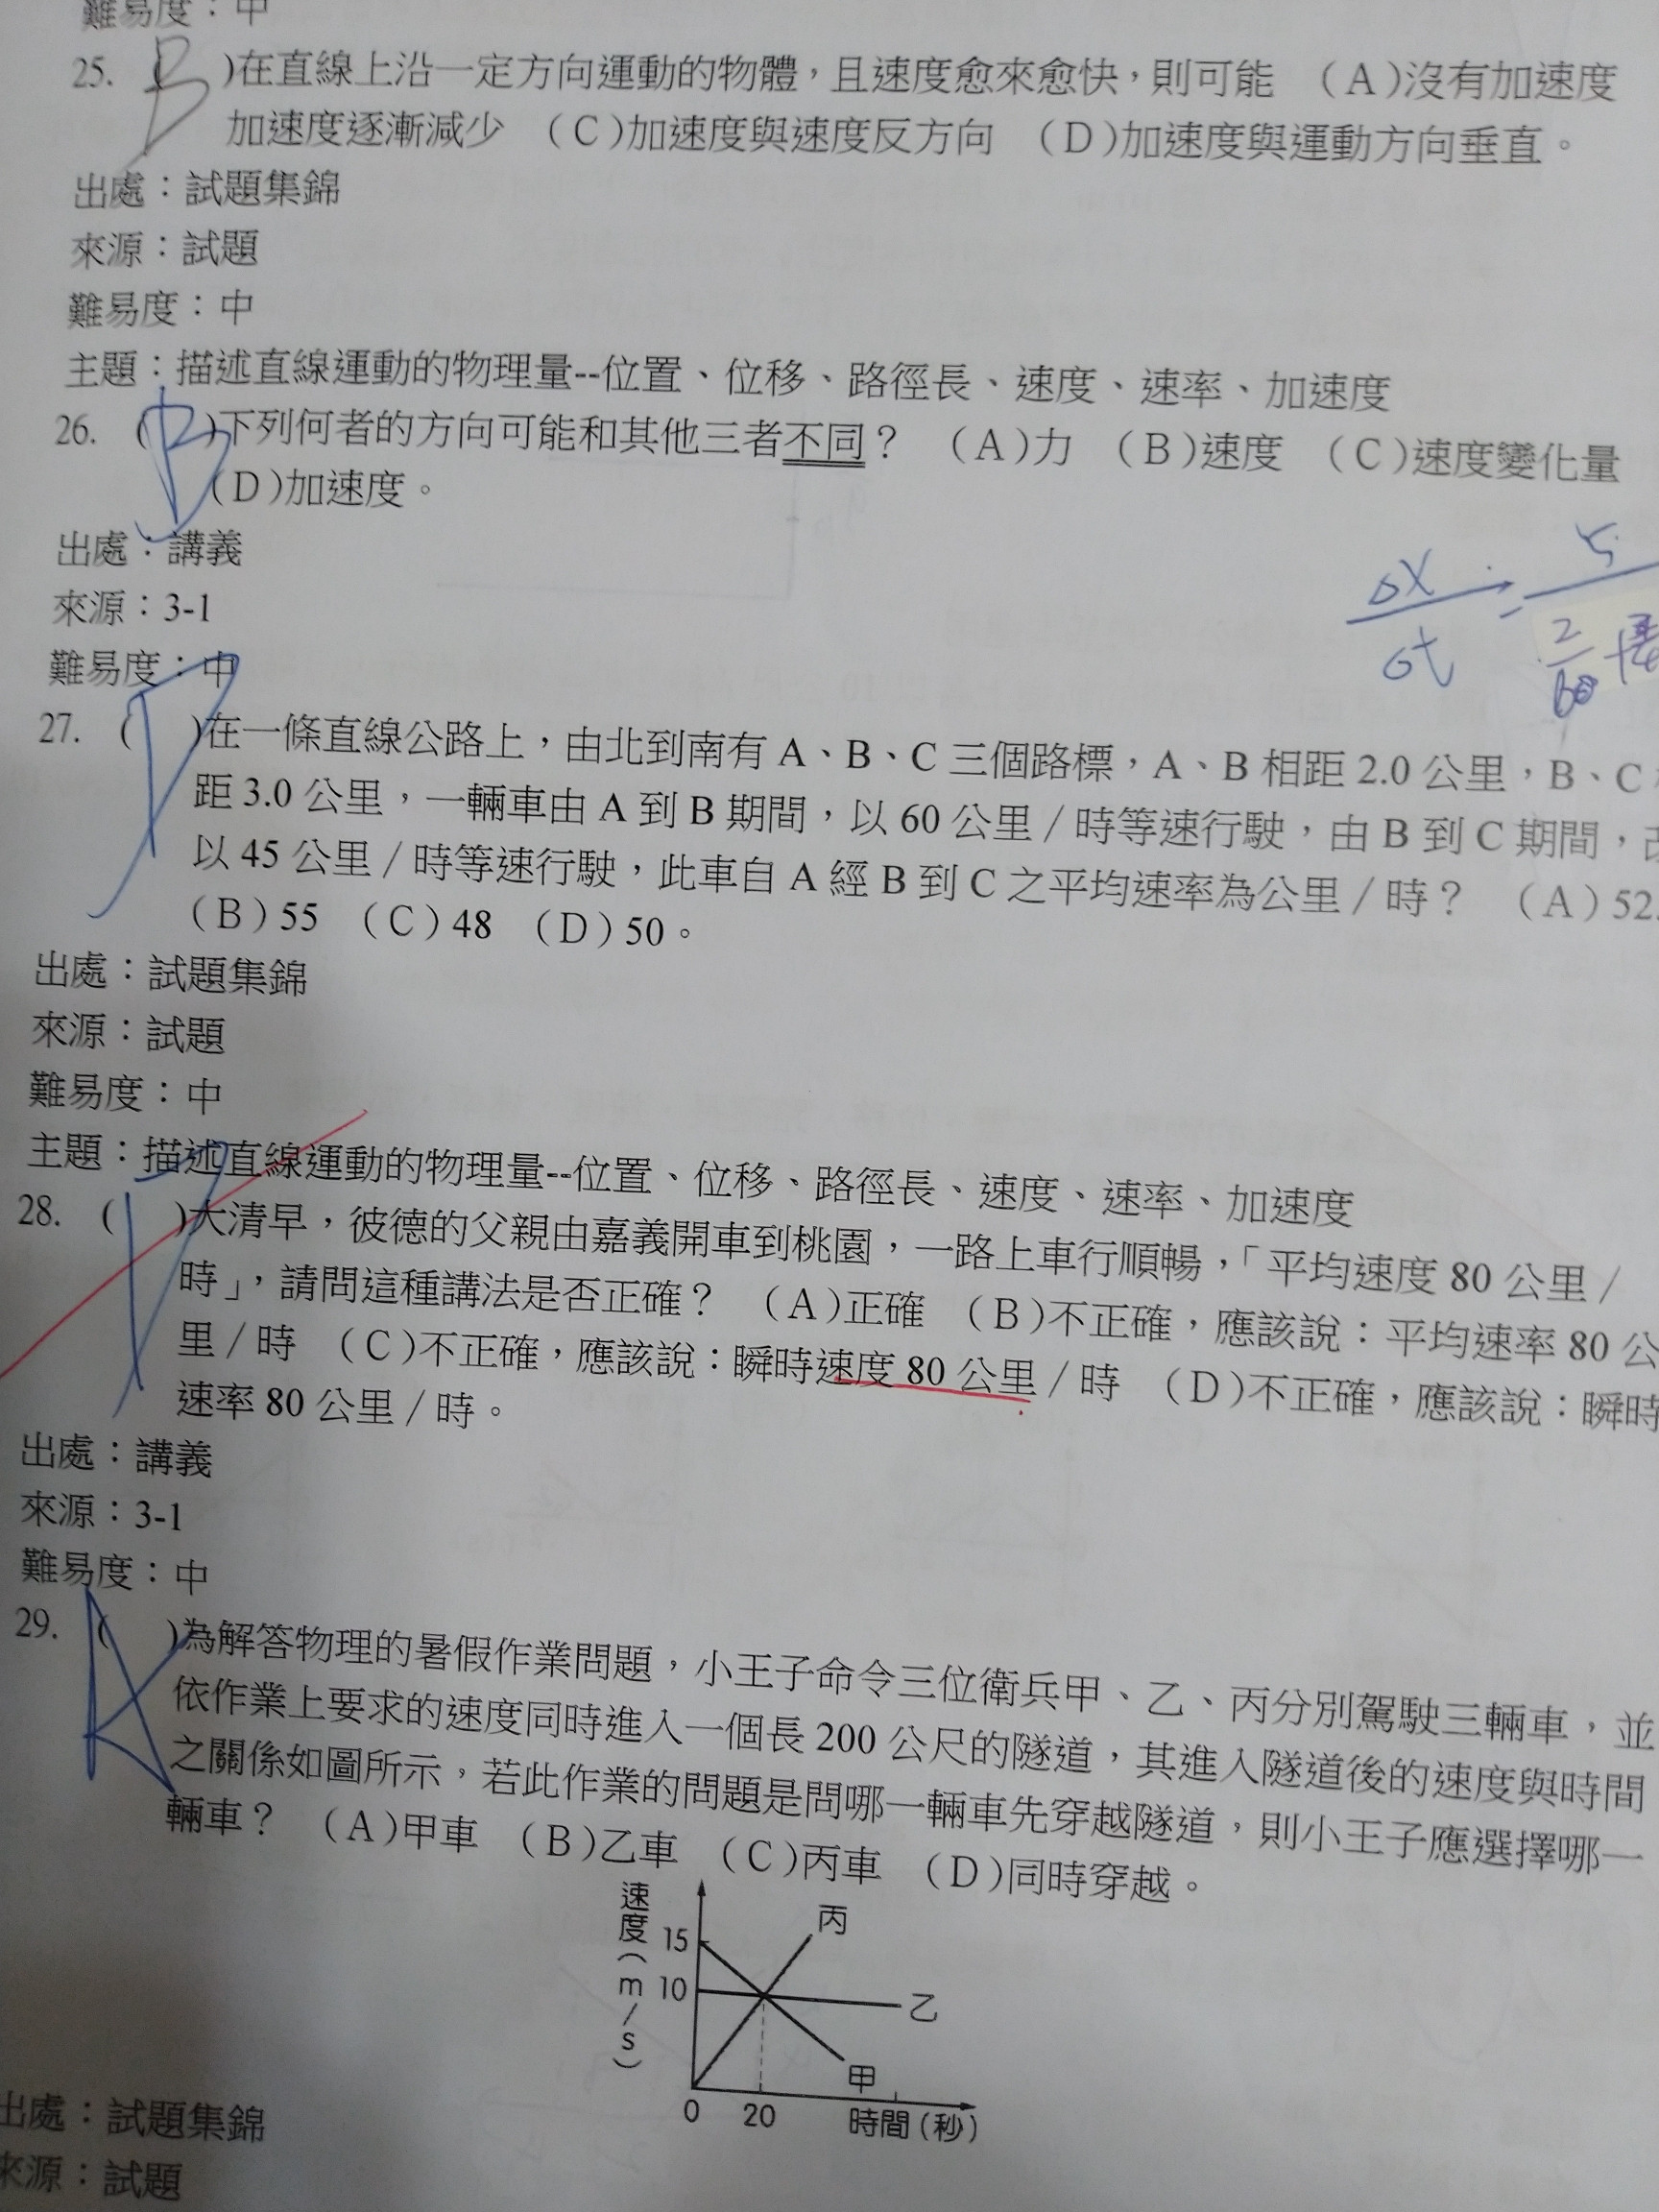 難易度：中
25. ( B )在直線上沿一定方向運動的物體，且速度愈來愈快，則可能 （A)沒有加速度
加速度逐漸減少 （C)加速度與速度反方向 （D)加速度與運動方向垂直。
出處：試題集錦
來源：試題
難易度：中
主題：描述直線運動的物理量--位置、位移、路徑長、速度、速率、加速度
26. ( B )下列何者的方向可能和其他三者不同？ （A)力 （B)速度 （C)速度變化量
(D)加速度。
出處：講義
來源：3-1
難易度：中
ΔX/Δt = 5/
2/60
27. ( )在一條直線公路上，由北到南有 A、B、C 三個路標，A、B 相距 2.0 公里，B、C
距 3.0 公里，一輛車由 A 到 B 期間，以 60 公里／時等速行駛，由 B 到 C 期間，
以 45 公里／時等速行駛，此車自 A 經 B 到 C 之平均速率為公里／時？ （A）52.
（B）55 （C）48 （D）50。
出處：試題集錦
來源：試題
難易度：中
主題：描述直線運動的物理量--位置、位移、路徑長、速度、速率、加速度
28. ( )大清早，彼德的父親由嘉義開車到桃園，一路上車行順暢，「平均速度 80 公里／
時」，請問這種講法是否正確？ （A)正確 （B)不正確，應該說：平均速率 80 公
里／時 （C)不正確，應該說：瞬時速度 80 公里／時 （D)不正確，應該說：瞬時
速率 80 公里／時。
出處：講義
來源：3-1
難易度：中
29. ( A )為解答物理的暑假作業問題，小王子命令三位衛兵甲、乙、丙分別駕駛三輛車，並
依作業上要求的速度同時進入一個長 200 公尺的隧道，其進入隧道後的速度與時間
之關係如圖所示，若此作業的問題是問哪一輛車先穿越隧道，則小王子應選擇哪一
輛車？ （A)甲車 （B)乙車 （C)丙車 （D)同時穿越。
速度(m/s)
15
10
丙
乙
甲
0 20 時間(秒)
出處：試題集錦
來源：試題